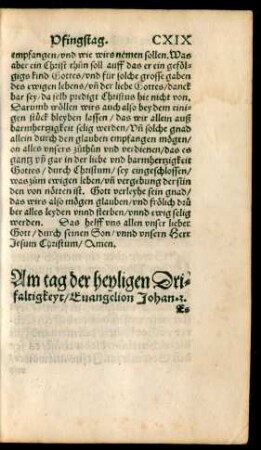 Pfingstag. CXIX
empfangen/vnd wie wirs nemen sollen. Was
aber ein Christ thůn soll auff das er ein geföl-
gigs kind Gottes/vnd für solche grosse gaben
des ewigen lebens/vñ der liebe Gottes/danck
bar sey/da selb predigt Christus hie nicht von.
Darumb wöllen wirs auch also bey dem eini-
gen stück bleyben lassen/das wir allein auß
barmhertzigkeit selig werden/Vñ solche gnad
allein durch den glauben empfangen mögen/
on alles vnsers zůthůn vnd verdienen/das es
gantz vñ gar in der liebe vnd barmhertzigkeit
Gottes/durch Christum/sey eingeschlossen/
was zům ewigen leben/vñ vergebung der sün
den von nötten ist. Gott verleyhe sein gnad/
das wirs also mögen glauben/vnd frölich daů
ber alles leyden vnnd sterben/vnnd ewig selig
werden. Das helff vns allen vnser lieber
Gott/durch seinen Son/vnnd vnsern Herr
Jesum Christum/Amen.
Am tag der heyligen Dri-
faltigkeyt/Euangelion Johan. 3.
Es